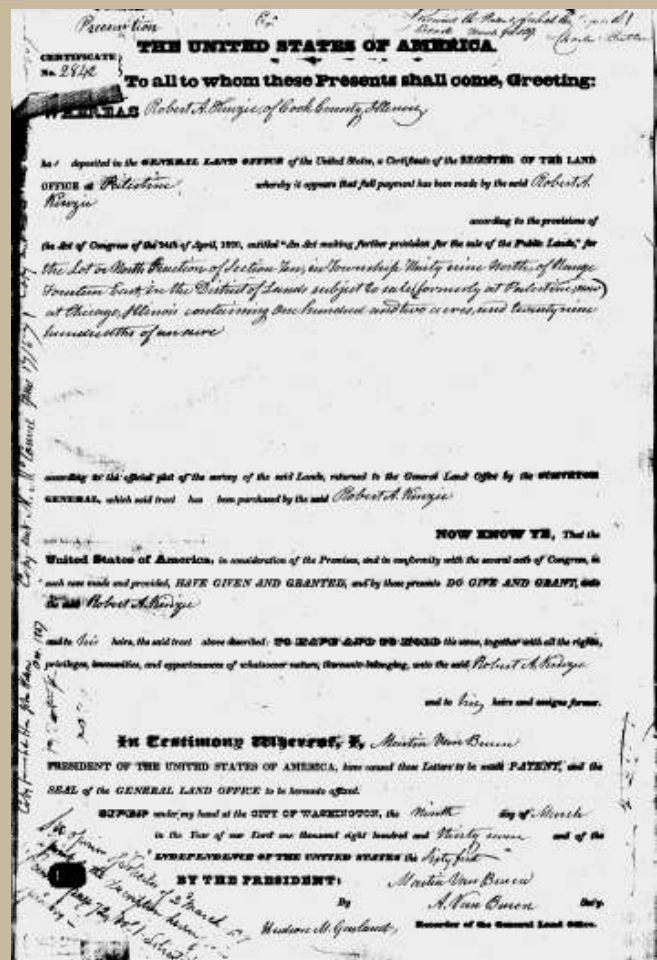 Preemption
CERTIFICATE
No. 2842
THE UNITED STATES OF AMERICA.
To all to whom these Presents shall come, Greeting:
WHEREAS Robert A. Kinzie, of Cook County, Illinois,
has deposited in the GENERAL LAND OFFICE of the United States, a Certificate of the REGISTER OF THE LAND
OFFICE at Palestine whereby it appears that full payment has been made by the said Robert A.
Kinzie
according to the provisions of
the Act of Congress of the 24th of April, 1820, entitled "An Act making further provision for the sale of the Public Lands," for
the Lot or North Fraction of Section Ten, in Township Thirty nine North, of Range
Fourteen East, in the District of Lands subject to sale (formerly at Palestine, now)
at Chicago, Illinois containing One hundred and two acres, and twenty nine
hundredths of an acre
according to the official plat of the survey of the said Lands, returned to the General Land Office by the SURVEYOR
GENERAL, which said tract has been purchased by the said Robert A. Kinzie
NOW KNOW YE, That the
United States of America, in consideration of the Premises, and in conformity with the several acts of Congress, in
such case made and provided, HAVE GIVEN AND GRANTED, and by these presents DO GIVE AND GRANT, unto
the said Robert A. Kinzie
and to his heirs, the said tract above described: TO HAVE AND TO HOLD the same, together with all the rights,
privileges, immunities, and appurtenances of whatsoever nature, thereunto belonging, unto the said Robert A. Kinzie
and to his heirs and assigns forever.
In Testimony Whereof, I, Martin Van Buren
PRESIDENT OF THE UNITED STATES OF AMERICA, have caused these Letters to be made PATENT, and the
SEAL of the GENERAL LAND OFFICE to be hereunto affixed.
GIVEN under my hand at the CITY OF WASHINGTON, the Ninth day of March
in the Year of our Lord one thousand eight hundred and thirty seven and of the
INDEPENDENCE OF THE UNITED STATES the Sixty first
BY THE PRESIDENT: Martin Van Buren
By A. Van Buren Sec'y.
Hudson M. Garland, Recorder of the General Land Office.